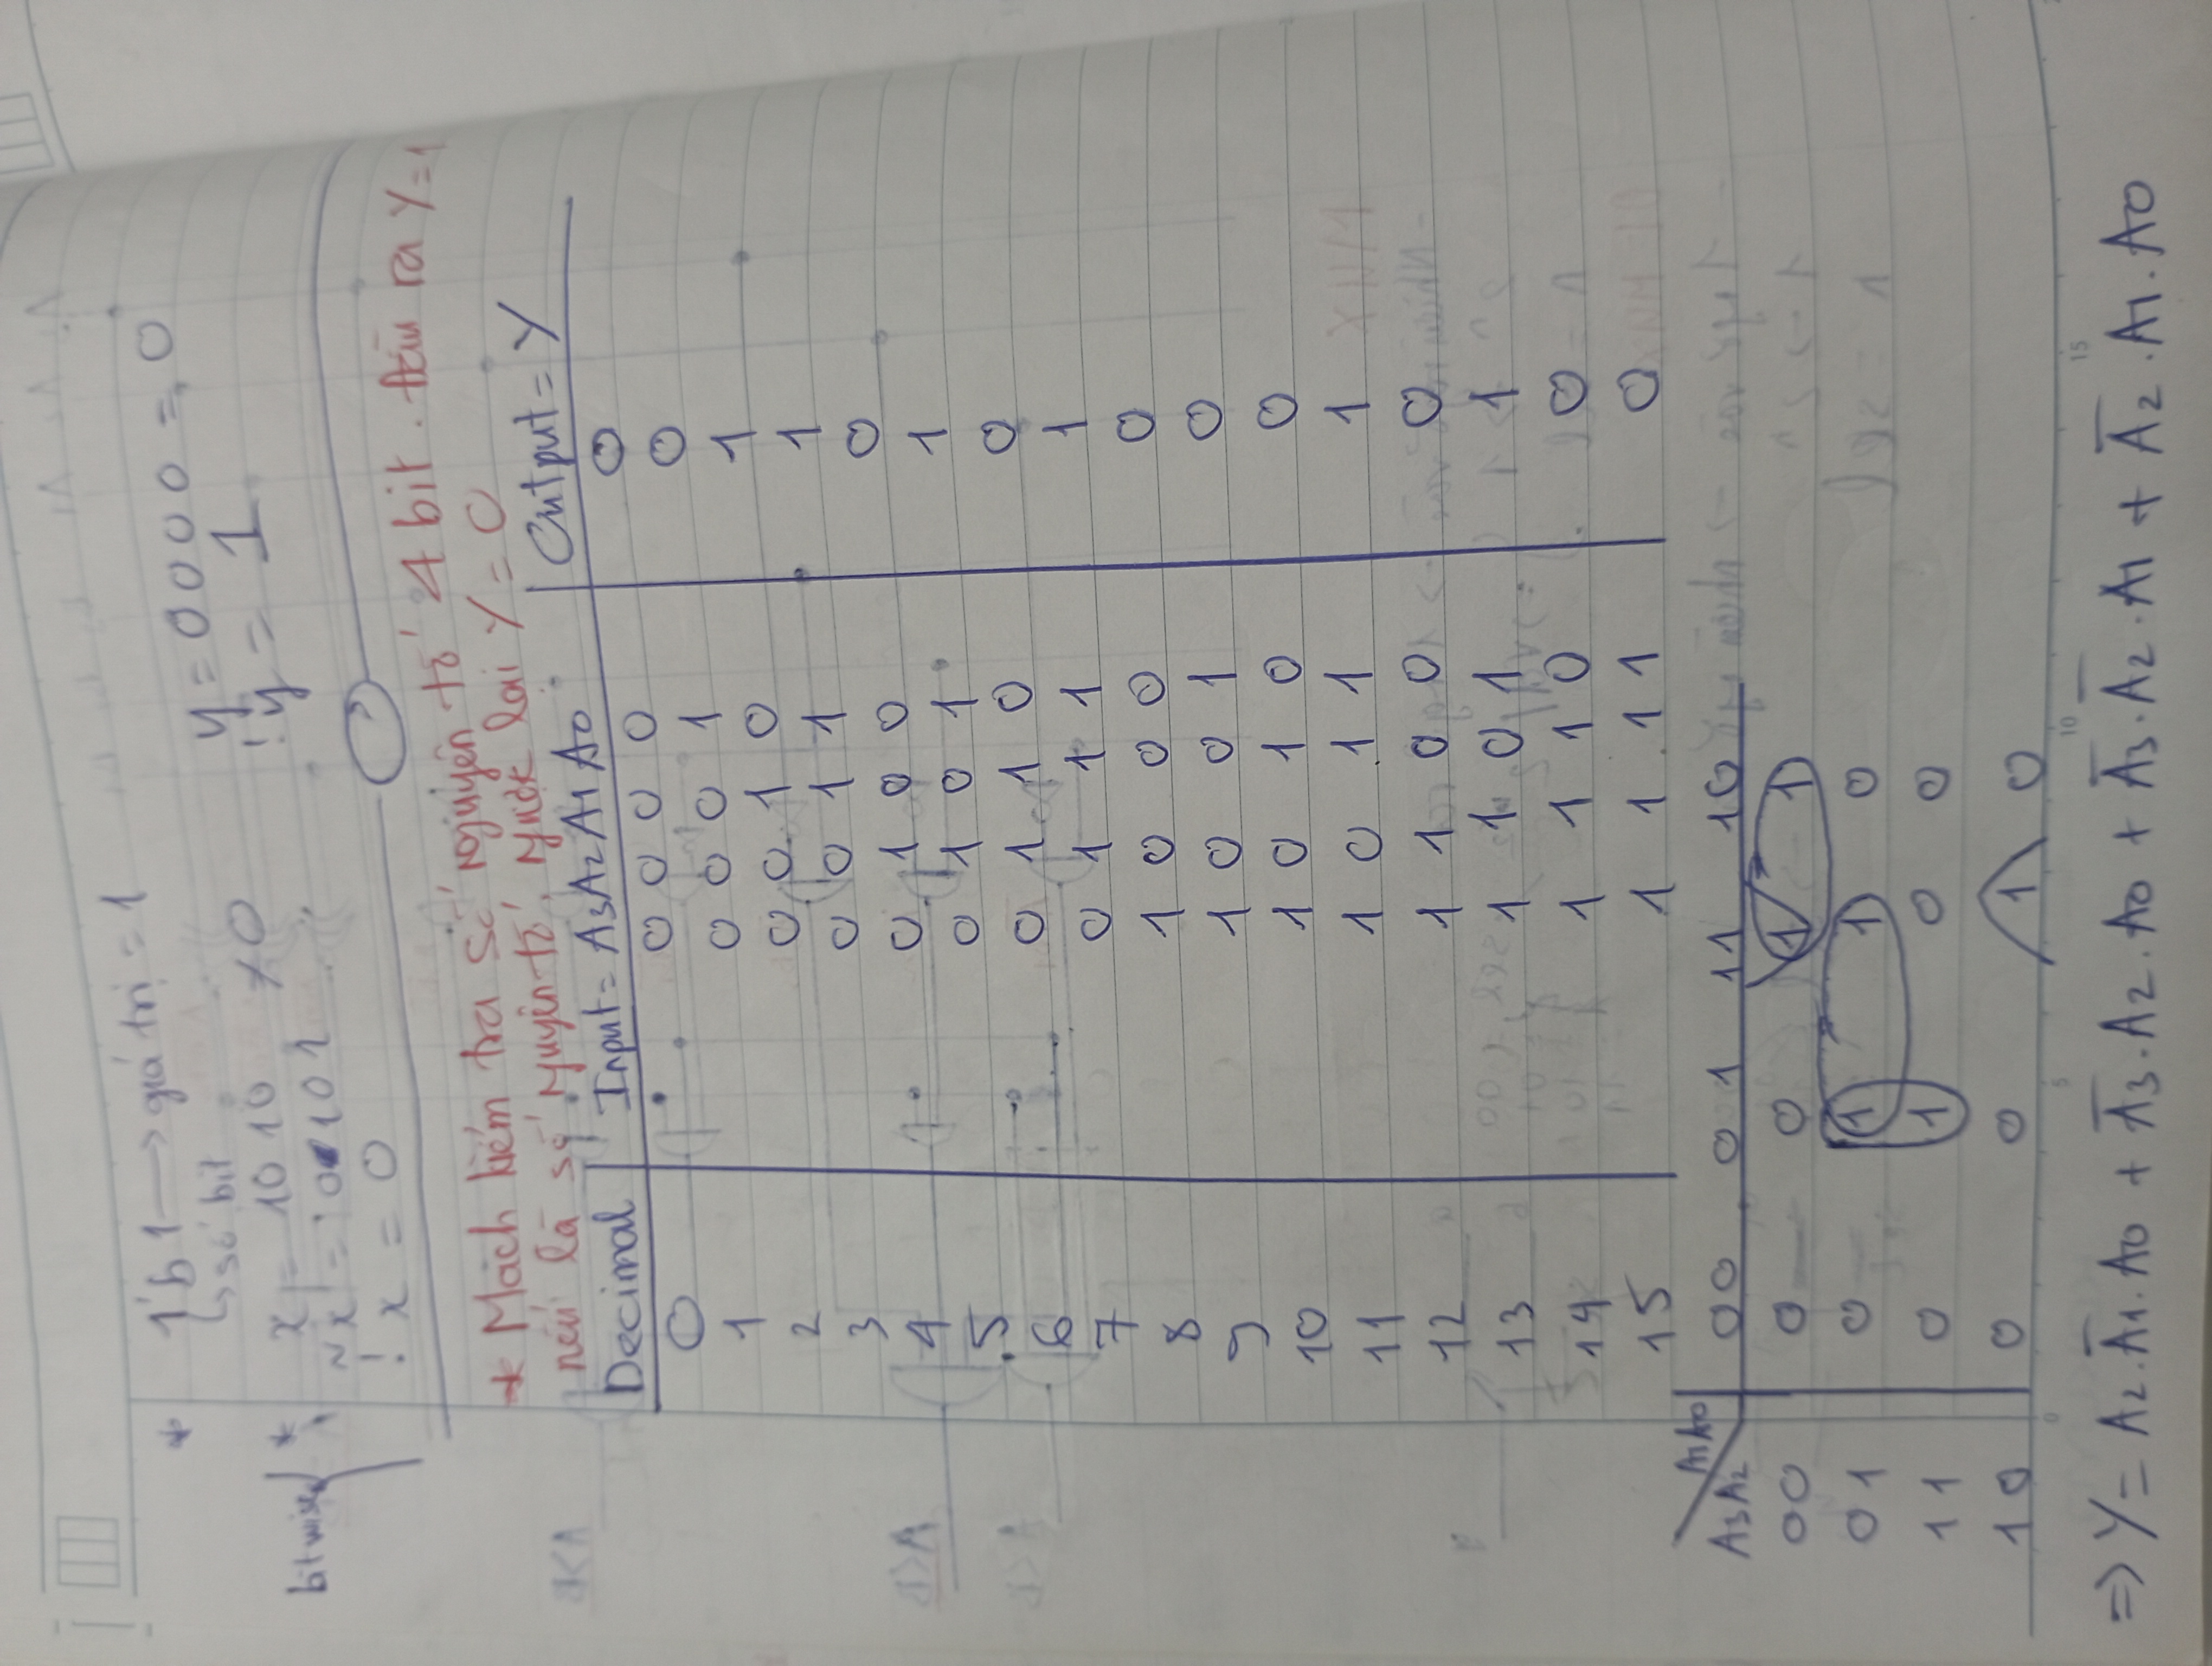 * 1'b1 → giá trị = 1
↳ số bit
y = 0000 = 0
bitwise * x = 1010 ≠0
!y = 1
~x = 0101
!x = 0
* Mạch kiểm tra số nguyên tố 4 bit. Đầu ra Y=1
nếu là số nguyên tố, ngược lại Y=0
Decimal Input = A3A2A1A0 Output = Y
0 0 0 0 0 0
1 0 0 0 1 0
2 0 0 1 0 1
3 0 0 1 1 1
4 0 1 0 0 0
5 0 1 0 1 1
6 0 1 1 0 0
7 0 1 1 1 1
8 1 0 0 0 0
9 1 0 0 1 0
10 1 0 1 0 0
11 1 0 1 1 1
12 1 1 0 0 0
13 1 1 0 1 1
14 1 1 1 0 0
15 1 1 1 1 0
A1A0
A3A2 00 01 11 10
00 0 0 1 1
01 0 1 1 0
11 0 1 0 0
10 0 0 1 0
0 5 10 15
⇒ Y = A2.A̅1.A0 + A̅3.A2.A0 + A̅3.A̅2.A1 + A̅2.A1.A0